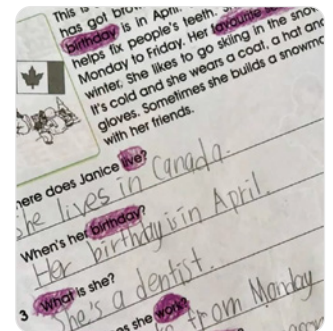 This is
has got bro
birthday is in April.
helps fix people's teeth.
Monday to Friday. Her favourite
winter. She likes to go skiing in the snow
It's cold and she wears a coat, a hat and
gloves. Sometimes she builds a snowm
with her friends.
here does Janice live?
She lives in Canada.
When's her birthday?
Her birthday is in April.
3 What is she?
She's a dentist.
es she work?
from Manday